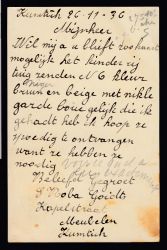 Kumtich 26-11-36
Mijnheer
Wil mij a u bleift zoohaast
mogelijk het kinder rij
tuig zenden No 6 kleur
bruin en beige met nikle
garde boue gelijk die ik
gehadt heb Ik hoop ze
spoedig te ontvangen
want ze hebben ze
noodig
Beleefde Gegroet
Goidts
Kapelstraat
Meubelen
Kumtich